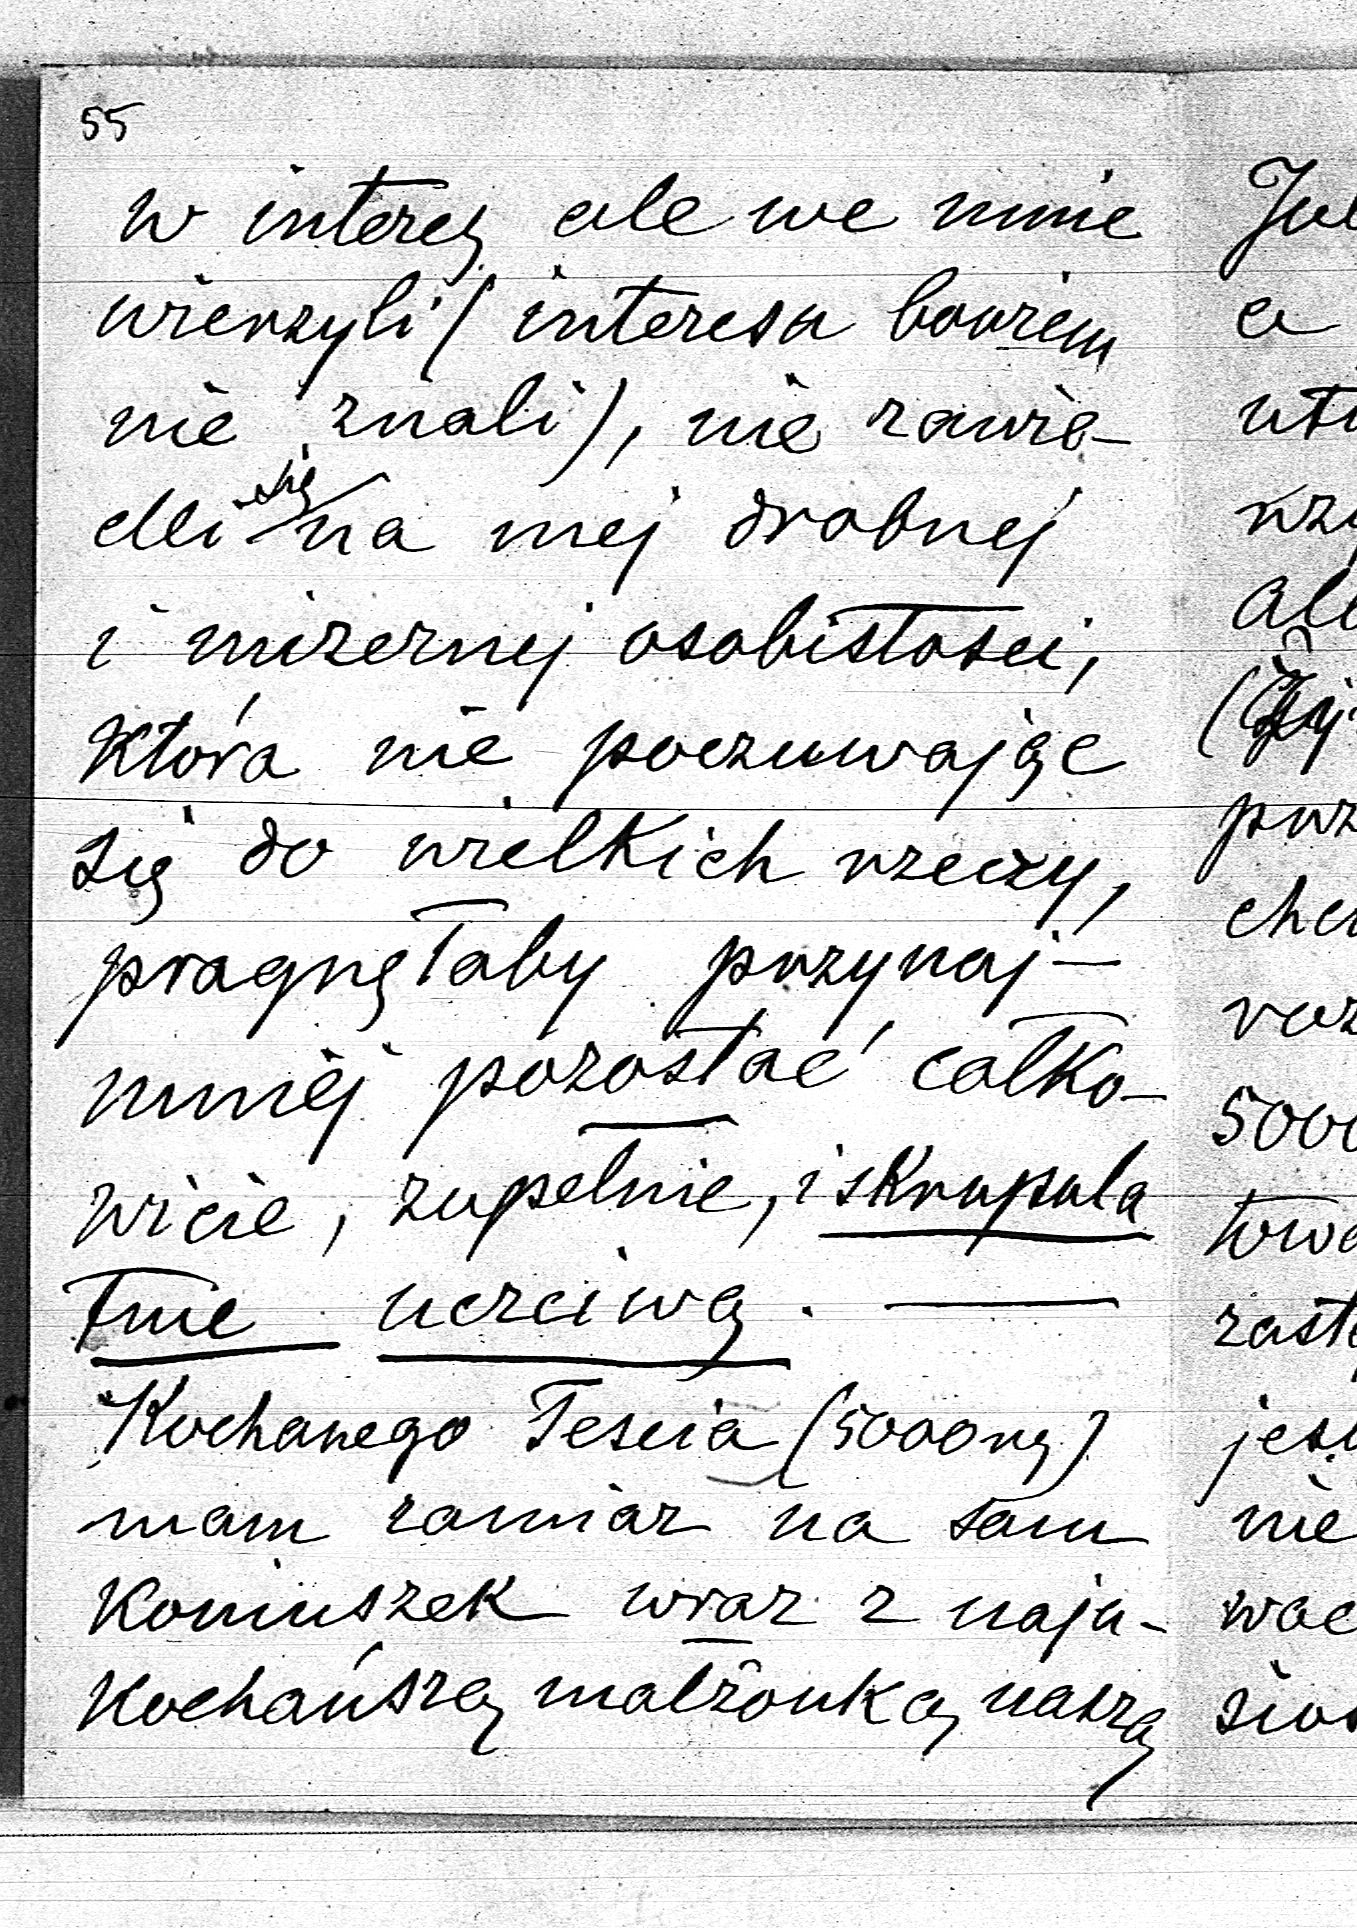 55
w interes ale we mnie
wierzyli (interesu bowiem
nie znali), nie zawie-
dli się na mej drobnej
i mizernej osobistości,
która nie poczuwając
się do wielkich rzeczy,
pragnęłaby przynaj-
mniej pozostać całko-
wicie, zupełnie, i skrupula
tnie uczciwą. —
Kochanego Teścia (5000 )
mam zamiar na sam
Koniuszek wraz z naju-
kochańszą małżonką naszą